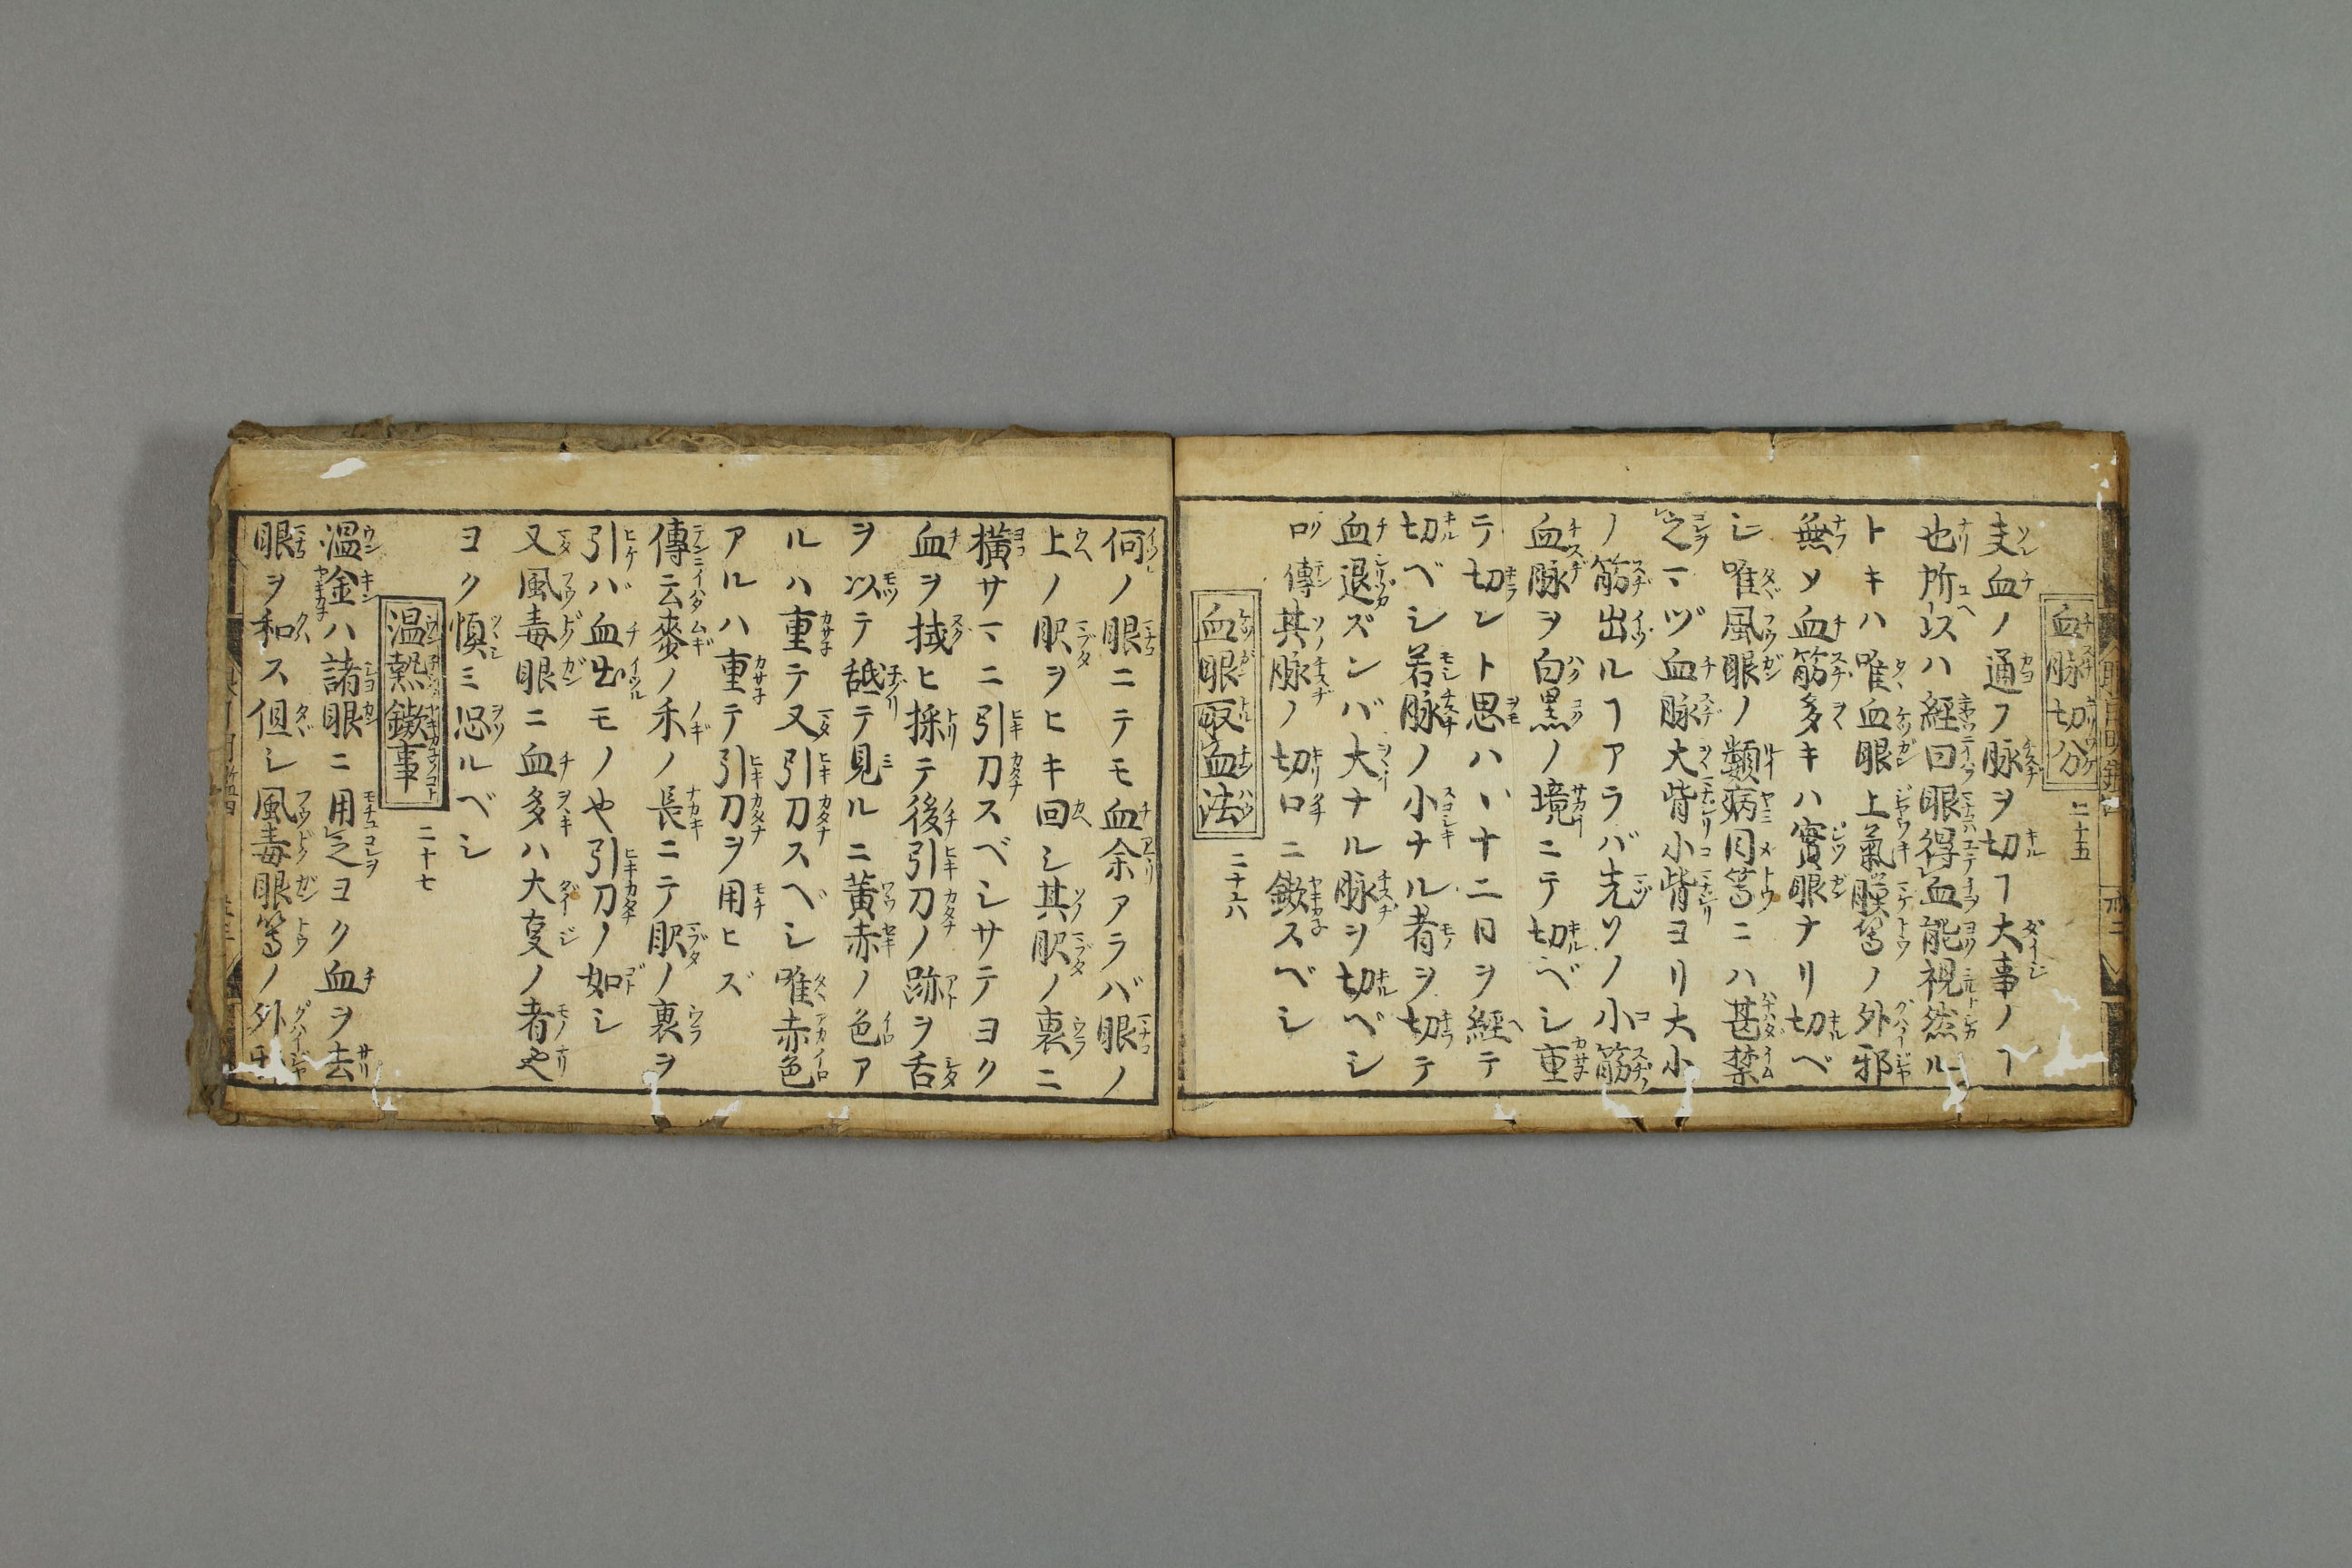 血脉切分 二十五
夫血ノ通フ脉ヲ切ヿ大事ノヿ
也所以ハ経曰眼得血能視然ル
トキハ唯血眼上氣膜等ノ外邪
無メ血筋多キハ實眼ナリ切ベ
シ唯風眼ノ類病目等ニハ甚禁
之マヅ血脉大眥小眥ヨリ大小
ノ筋出ルヿアラバ先ソノ小筋
血脉ヲ白黒ノ境ニテ切ベシ重
テ切ント思ハヾ十二日ヲ経テ
切ベシ若脉ノ小ナル者ヲ切テ
血退ズンバ大ナル脉ヲ切ベシ
口傳其脉ノ切口ニ鍁スベシ
血眼取血法 二十六
何ノ眼ニテモ血余アラバ眼ノ
上ノ眂ヲヒキ回シ其眂ノ裏ニ
横サマニ引刀スベシサテヨク
血ヲ拭ヒ採テ後引刀ノ跡ヲ舌
ヲ以テ舐テ見ルニ黄赤ノ色ア
ルハ重テ又引刀スベシ唯赤色
アルハ重テ引刀ヲ用ヒズ
傳ニ云麥ノ禾ノ長キニテ眂ノ裏ヲ
引バ血出モノや引刀ノ如シ
又風毒眼ニ血多ハ大叓ノ者や
ヨク慎ミ恐ルベシ
温熱鍁事 二十七
温金ハ諸眼ニ用之ヨク血ヲ去
眼ヲ和ス但シ風毒眼等ノ外